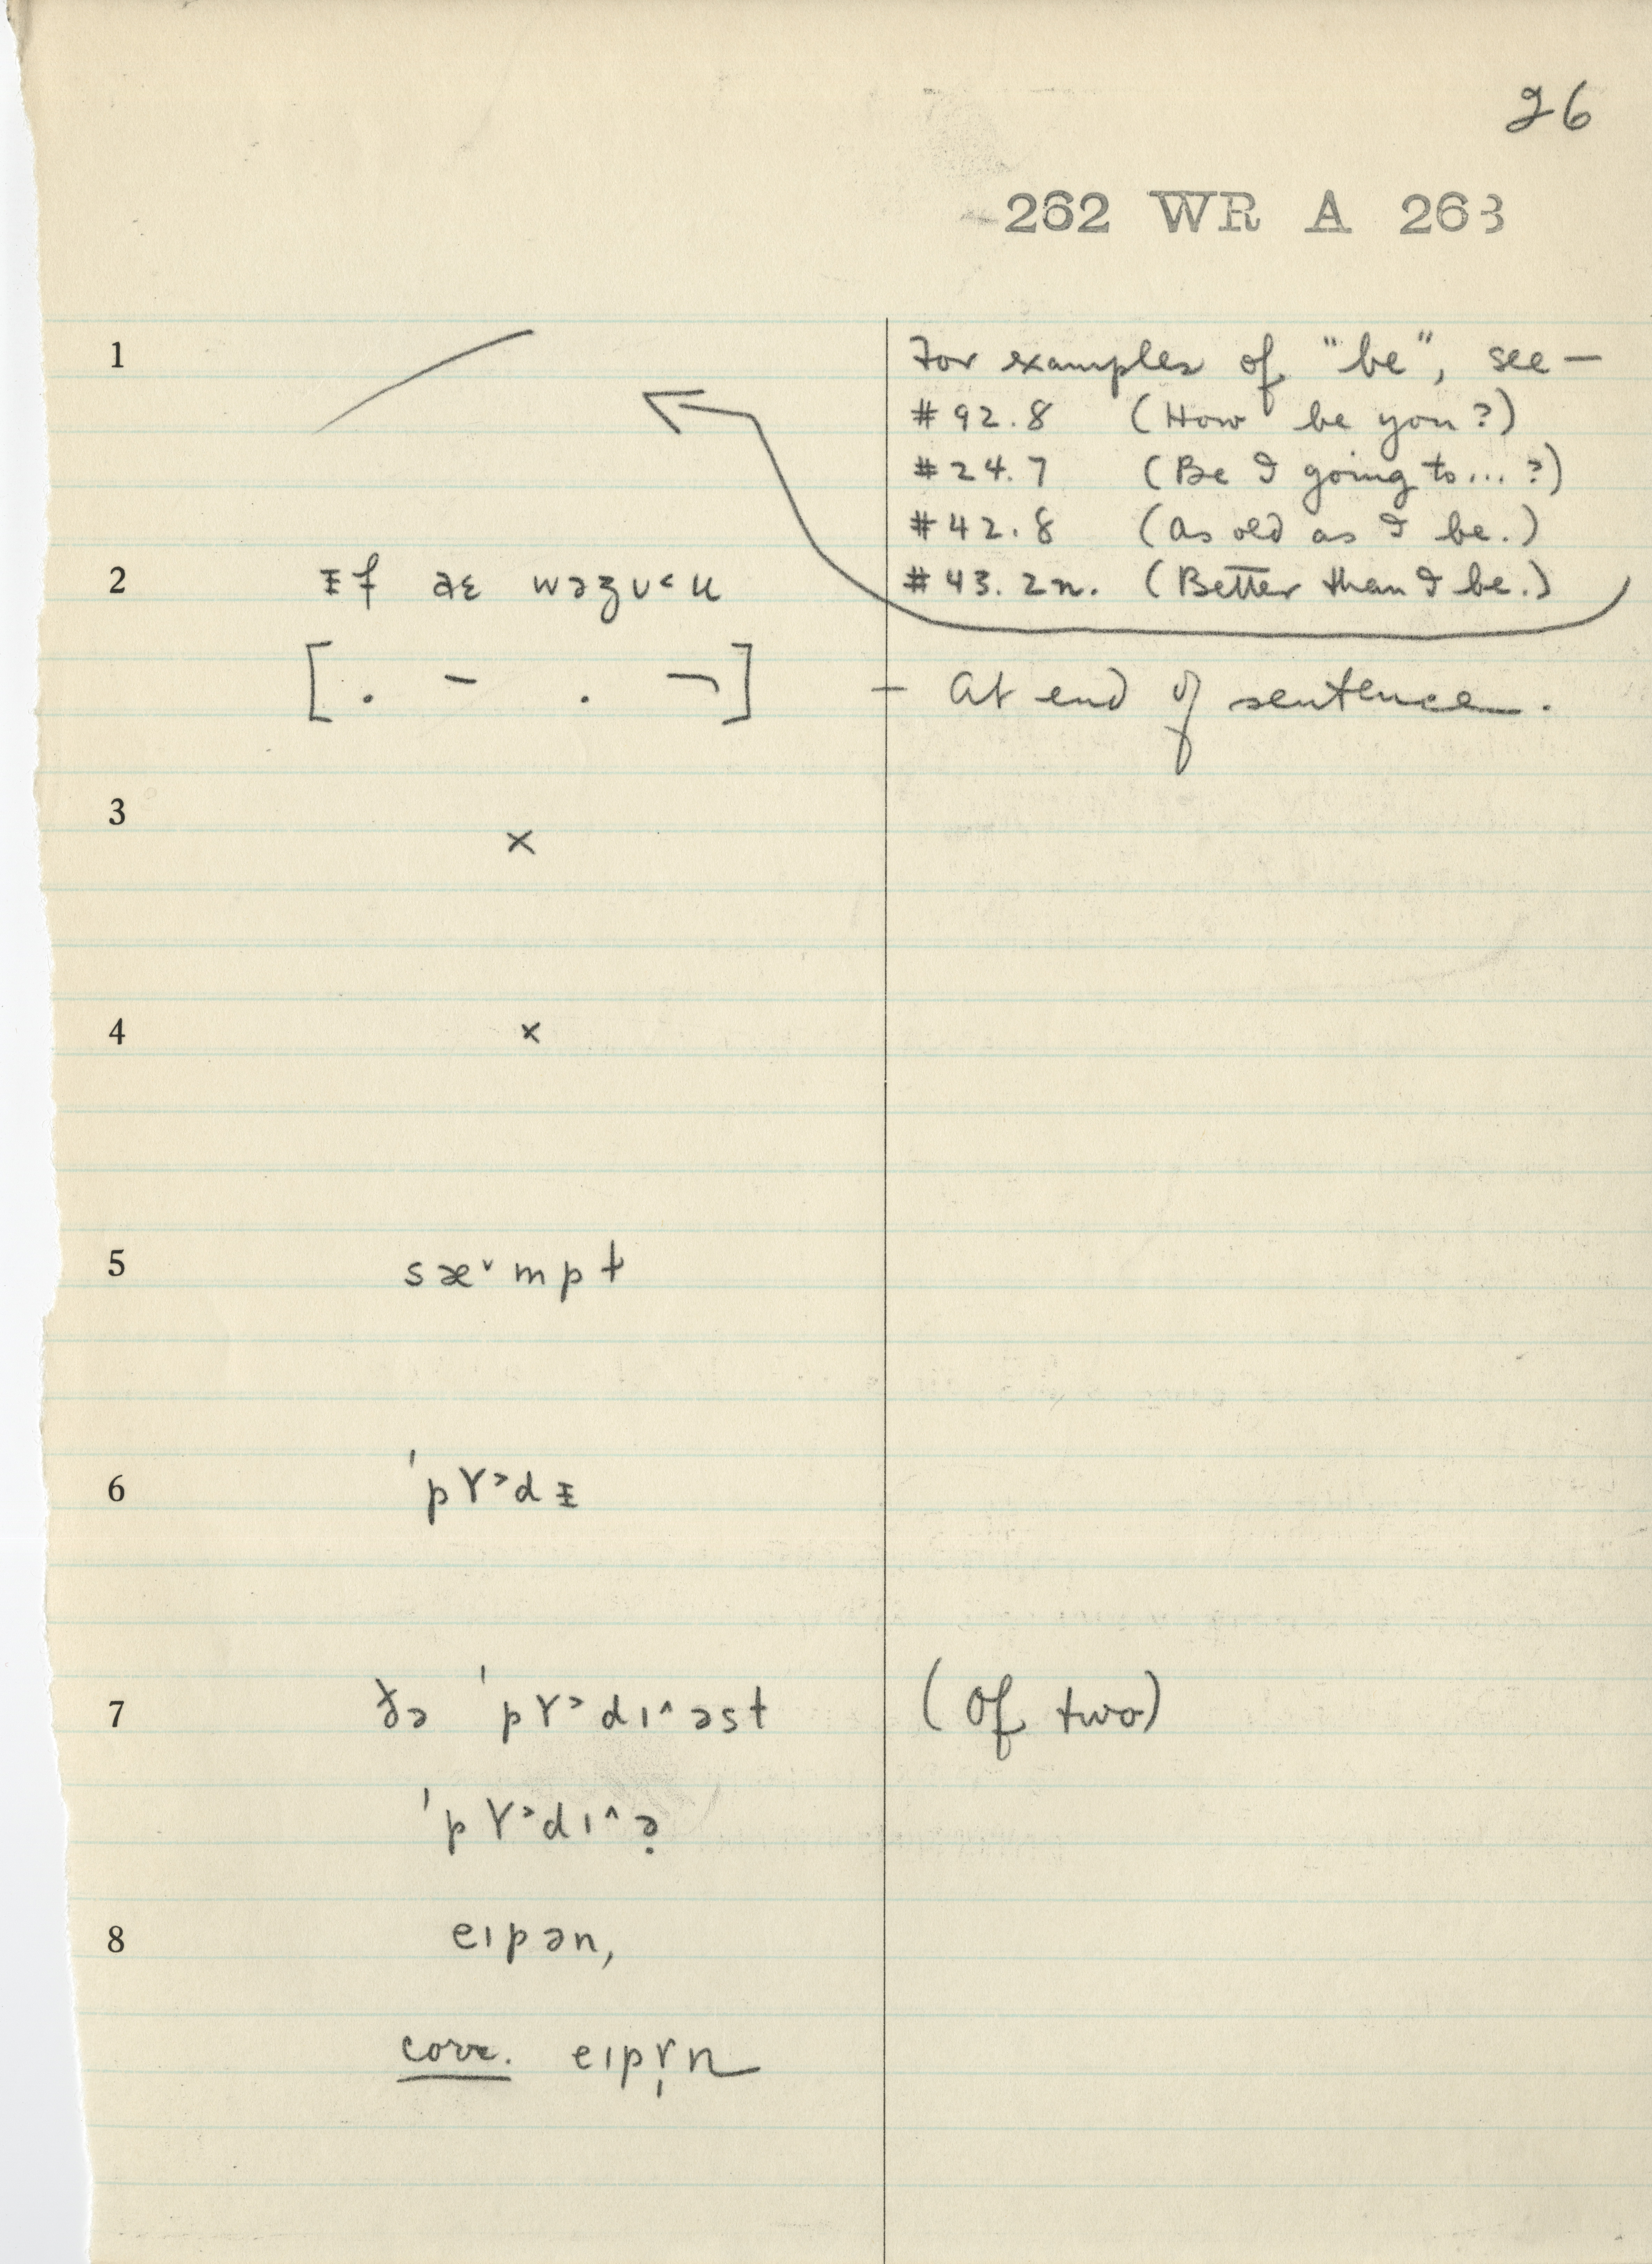 26
262 WR A 263
1 For examples of "be", see —
#92.8 (How be you?)
#24.7 (Be I going to...?)
#42.8 (As old as I be.)
2 ᵻf aɛ wəz ʋ˂u #43.2n. (Better than I be.)
[. – . ¬] — At end of sentence.
3 ×
4 ×
5 sæ˅mpt
6 ˈpɤ˃dᵻ
7 ðə ˈpɤ˃dɪ^əst (Of two)
ˈpɤ˃dɪ^ə̣
8 eɪpən,
corr. eɪpr̩n